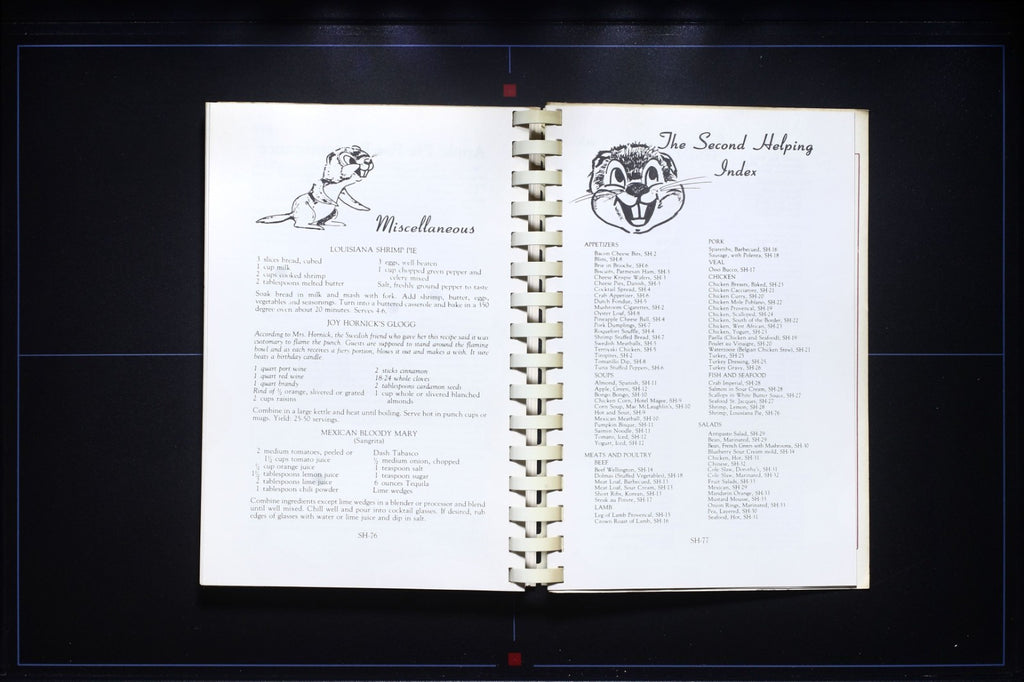 Miscellaneous
LOUISIANA SHRIMP PIE
3 slices bread, cubed
1 cup milk
2 cups cooked shrimp
2 tablespoons melted butter
3 eggs, well beaten
1 cup chopped green pepper and
celery mixed
Salt, freshly ground pepper to taste
Soak bread in milk and mash with fork. Add shrimp, butter, eggs,
vegetables and seasonings. Turn into a buttered casserole and bake in a 350
degree oven about 20 minutes. Serves 4-6.
JOY HORNICK'S GLOGG
According to Mrs. Hornick, the Swedish friend who gave her this recipe said it was
customary to flame the punch. Guests are supposed to stand around the flaming
bowl and as each receives a fiery portion, blows it out and makes a wish. It sure
beats a birthday candle.
1 quart port wine
1 quart red wine
1 quart brandy
Rind of ½ orange, slivered or grated
2 cups raisins
2 sticks cinnamon
18-24 whole cloves
2 tablespoons cardamon seeds
1 cup whole or slivered blanched
almonds
Combine in a large kettle and heat until boiling. Serve hot in punch cups or
mugs. Yield: 25-50 servings.
MEXICAN BLOODY MARY
(Sangrita)
2 medium tomatoes, peeled or
1½ cups tomato juice
cup orange juice
1½ tablespoons lemon juice
2 tablespoons lime juice
1 tablespoon chili powder
Dash Tabasco
½ medium onion, chopped
1 teaspoon salt
1 teaspoon sugar
6 ounces Tequila
Lime wedges
Combine ingredients except lime wedges in a blender or processor and blend
until well mixed. Chill well and pour into cocktail glasses. If desired, rub
edges of glasses with water or lime juice and dip in salt.
SH-76
The Second Helping
Index
APPETIZERS
Bacon Cheese Bits, SH-2
Blini, SH-8
Brie in Brioche, SH-6
Biscuits, Parmesan Ham, SH-3
Cheese Krispie Wafers, SH-3
Cheese Pies, Danish, SH-5
Cocktail Spread, SH-4
Crab Appetizer, SH-6
Dutch Fondue, SH-5
Mushroom Cigarettes, SH-2
Oyster Loaf, SH-8
Pineapple Cheese Ball, SH-4
Pork Dumplings, SH-7
Roquefort Souffle, SH-4
Shrimp Stuffed Bread, SH-7
Swedish Meatballs, SH-3
Teriyaki Chicken, SH-5
Tiropites, SH-2
Tomatillo Dip, SH-8
Tuna Stuffed Peppers, SH-6
SOUPS
Almond, Spanish, SH-11
Apple, Green, SH-12
Bongo Bongo, SH-10
Chicken Corn, Hotel Magee, SH-9
Corn Soup, Mac McLaughlin's, SH-10
Hot and Sour, SH-9
Mexican Meatball, SH-10
Pumpkin Bisque, SH-11
Saimin Noodle, SH-11
Tomato, Iced, SH-12
Yogurt, Iced, SH-12
MEATS AND POULTRY
BEEF
Beef Wellington, SH-14
Dolmas (Stuffed Vegetables), SH-18
Meat Loaf, Barbecued, SH-13
Meat Loaf, Sour Cream, SH-13
Short Ribs, Korean, SH-13
Steak au Poivre, SH-17
LAMB
Leg of Lamb Provencal, SH-15
Crown Roast of Lamb, SH-16
PORK
Spareribs, Barbecued, SH-16
Sausage, with Polenta, SH-18
VEAL
Osso Bucco, SH-17
CHICKEN
Chicken Breasts, Baked, SH-23
Chicken Cacciatore, SH-21
Chicken Curry, SH-20
Chicken Mole Poblano, SH-22
Chicken Provencal, SH-19
Chicken, Scalloped, SH-24
Chicken, South of the Border, SH-22
Chicken, West African, SH-23
Chicken, Yogurt, SH-23
Paella (Chicken and Seafood), SH-19
Poulet au Vinaigre, SH-20
Waterzooie (Belgian Chicken Stew), SH-21
Turkey, SH-25
Turkey Dressing, SH-25
Turkey Gravy, SH-26
FISH AND SEAFOOD
Crab Imperial, SH-28
Salmon in Sour Cream, SH-28
Scallops in White Butter Sauce, SH-27
Seafood St. Jacques, SH-27
Shrimp, Lemon, SH-28
Shrimp, Louisiana Pie, SH-76
SALADS
Antipasto Salad, SH-29
Bean, Marinated, SH-29
Bean, French Green with Mushrooms, SH-30
Blueberry Sour Cream mold, SH-34
Chicken, Hot, SH-31
Chinese, SH-32
Cole Slaw, Dorothy's, SH-31
Cole Slaw, Marinated, SH-32
Fruit Salads, SH-33
Mexican, SH-29
Mandarin Orange, SH-33
Mustard Mousse, SH-33
Onion Rings, Marinated, SH-33
Pea, Layered, SH-30
Seafood, Hot, SH-31
SH-77